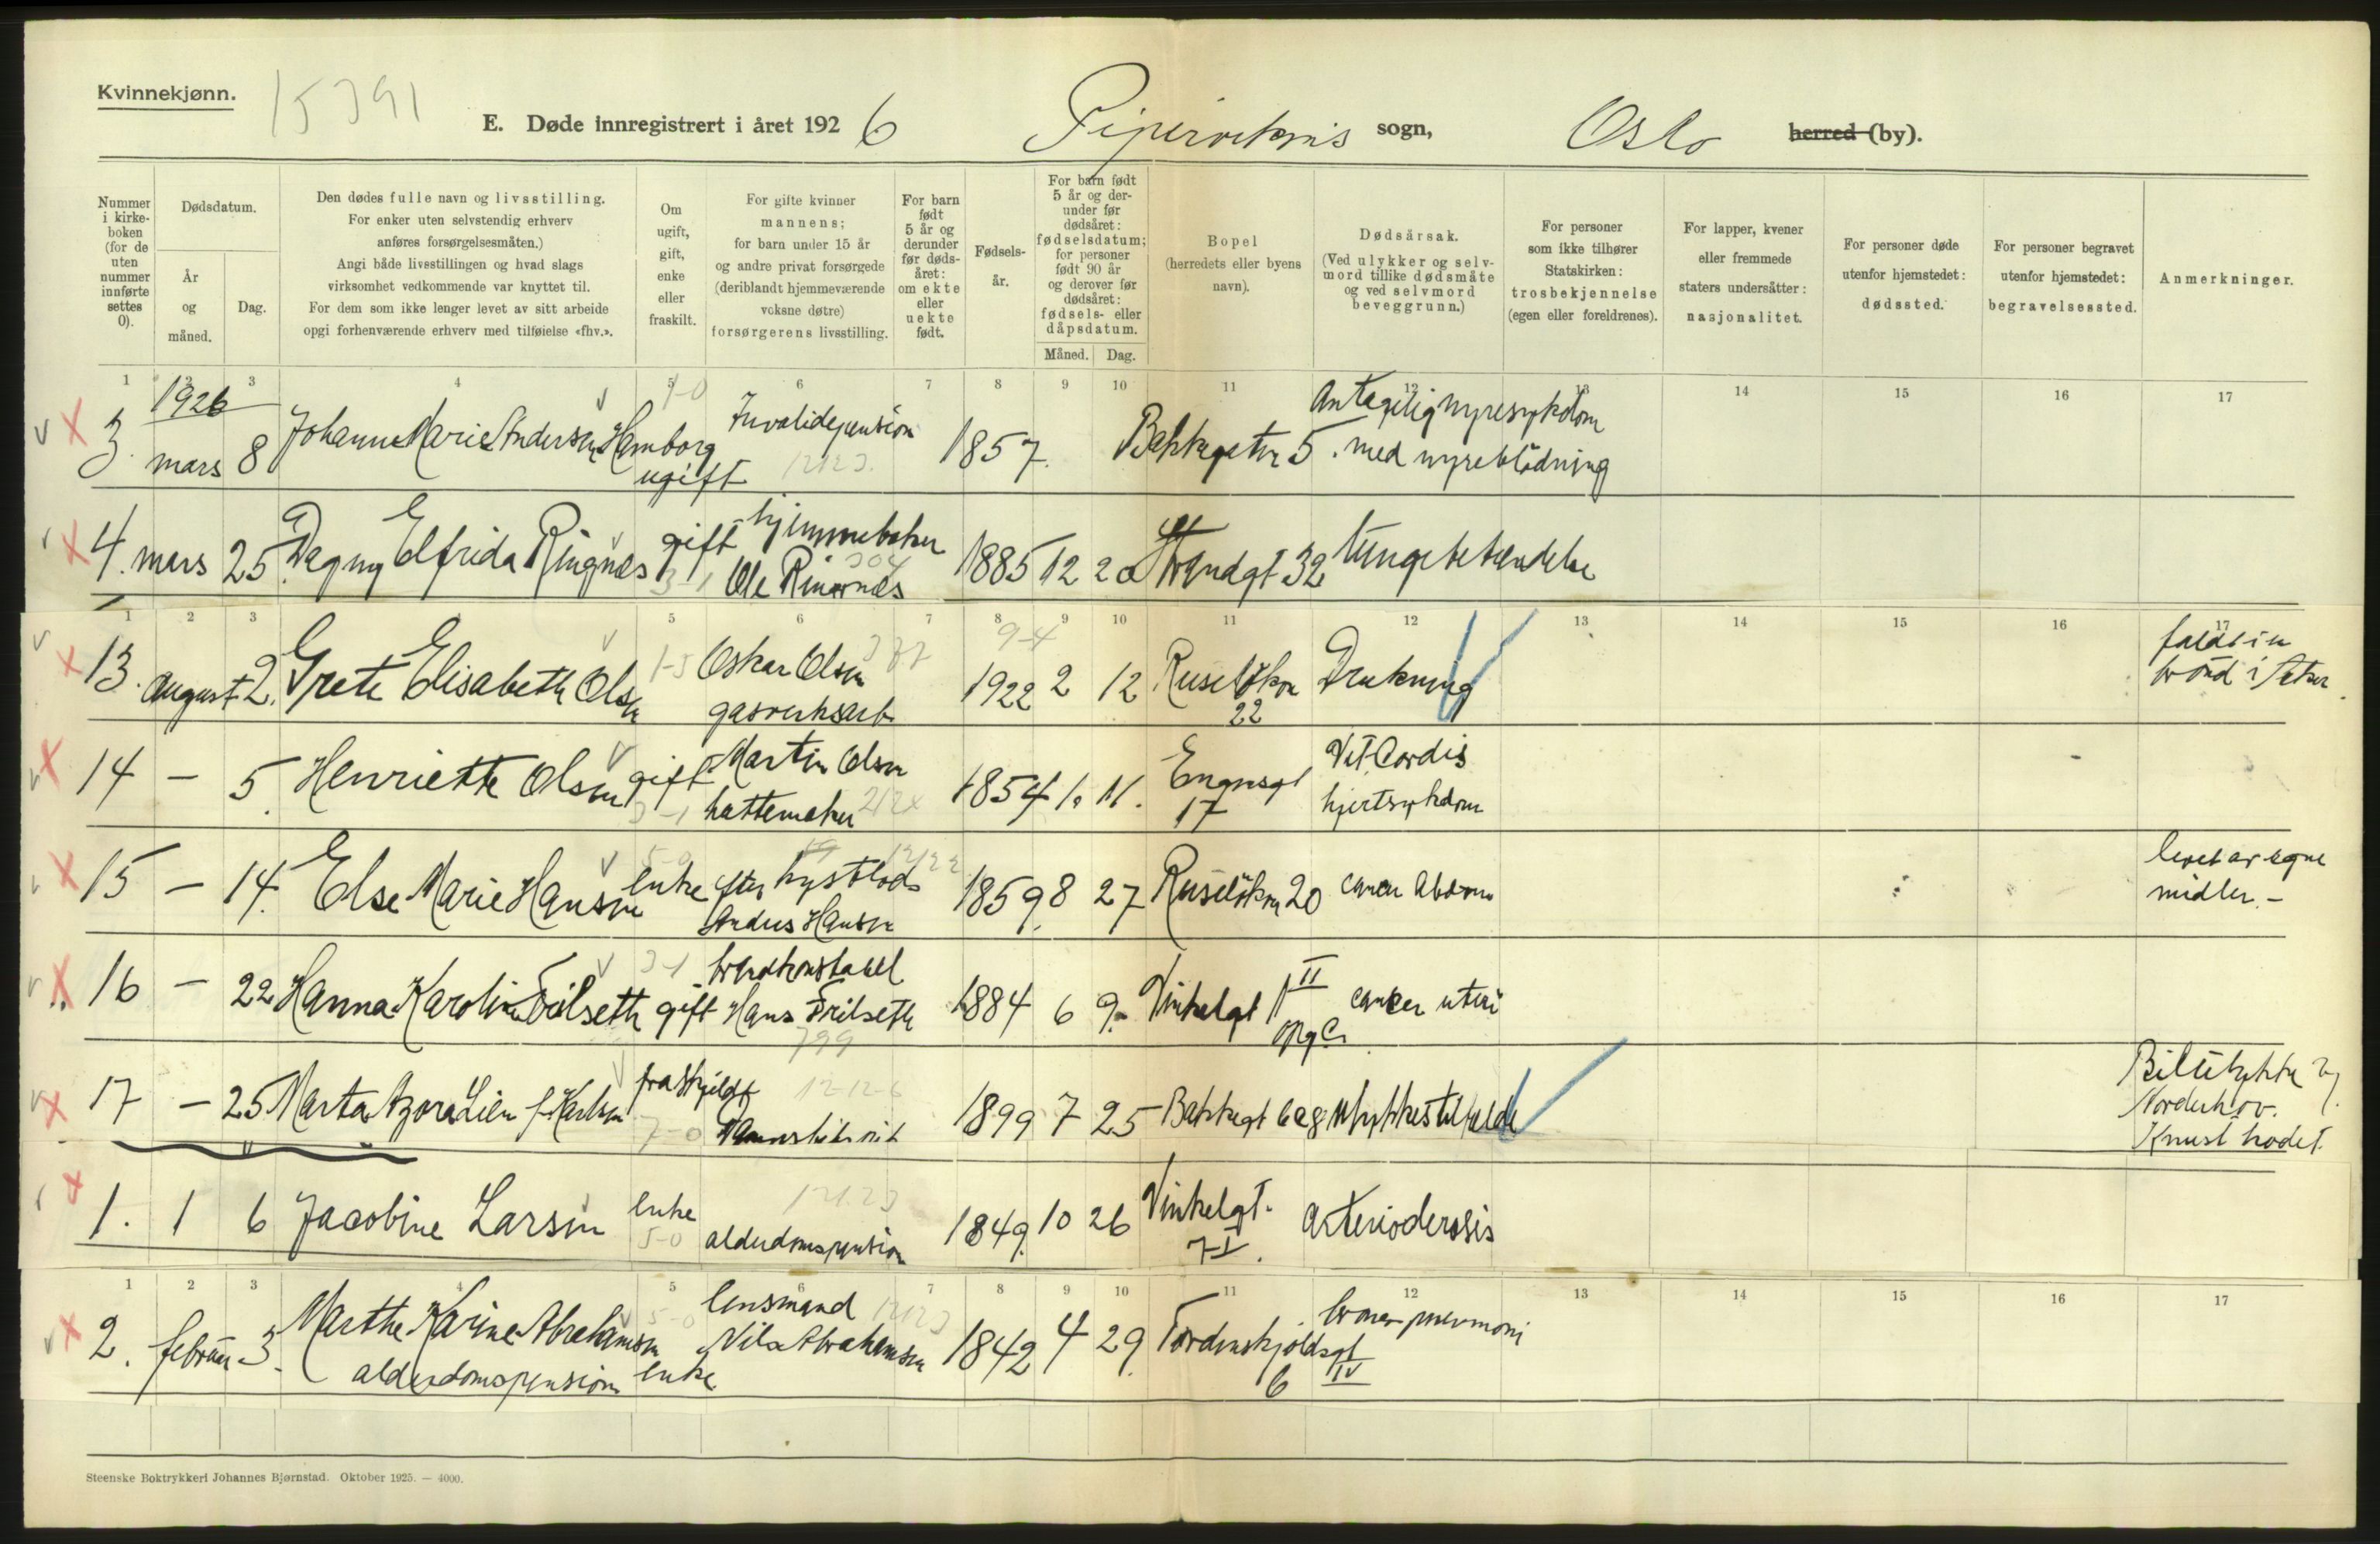 Kvinnekjønn.
15391
E. Døde innregistrert i året 1926 Pipervikens sogn, Oslo herred (by).
Nummer i kirke-boken (for de uten nummer innførte settes 0).
Dødsdatum.
År og måned.
Dag.
Den dødes fulle navn og livsstilling.
For enker uten selvstendig erhverv
anføres forsørgelsesmåten.)
Angi både livsstillingen og hvad slags
virksomhet vedkommende var knyttet til.
For dem som ikke lenger levet av sitt arbeide
opgi forhenværende erhverv med tilføielse «fhv.».
Om ugift, gift, enke eller fraskilt.
For gifte kvinner
mannens;
for barn under 15 år
og andre privat forsørgede
(deriblandt hjemmeværende
voksne døtre)
forsørgerens livsstilling.
For barn født 5 år og derunder før døds-året: om ekte eller uekte født.
Fødsels-år.
For barn født
5 år og der-
under før
dødsåret:
fødselsdatum;
for personer
født 90 år
og derover før
dødsåret:
fødsels- eller
dåpsdatum.
Måned. Dag.
Bopel
(herredets eller byens
navn).
Dødsårsak.
(Ved ulykker og selv-
mord tillike dødsmåte
og ved selvmord
beveggrunn.)
For personer
som ikke tilhører
Statskirken:
trosbekjennelse
(egen eller foreldrenes).
For lapper, kvener
eller fremmede
staters undersåtter:
nasjonalitet.
For personer døde
utenfor hjemstedet:
dødssted.
For personer begravet
utenfor hjemstedet:
begravelsessted.
Anmerkninger.
1 2 3 4 5 6 7 8 9 10 11 12 13 14 15 16 17
1926
3. mars 8 Johanne Marie Andersen Hamborg ugift Invalidepension 1857. Bakkegaten 5. Antagelig nyresykdom
med nyreblödning
4. mars 25. Dagny Elfrida Ringnes gift hjemmebaker
Ole Ringnes 1885 12 20 Strandgt 32 lungebetændelse
1 2 3 4 5 6 7 8 9 10 11 12 13 14 15 16 17
13. august 2. Grete Elisabeth Olsen 1-5 Oskar Olsen
gasverksarb 9-4 1922 2 12 Ruselökn 22 Drukning faldt i en
brönd i Sætser
14 – 5. Henriette Olsen gift Martin Olsen
hattemaker 1854 1. 11. Engensgt 17 Vit. Cordis
hjertsykdom
15 – 14. Else Marie Hansen enke efter kystlods
Anders Hansen 1859. 8 27 Ruselökn 20 cancer Abdom levet av egne
midler. –
16 – 22 Hanna Karoline Frilseth gift brandkonstabel
Hans Frilseth 1884 6 9. Vinkelgt 1 II opg C. cancer uteri
17 – 25 Marta Azora Lien f. Karlsen fraskildt 1899 7 25 Bakkegt 6 og 8 Ulykkestilfælde Bilulykke
Norderhov.
Knust hodet.
1. 1 6 Jacobine Larsen enke 5-0 alderdomspension 1849. 10 26 Vinkelgt. 7 I. arteriosclerosis
1 2 3 4 5 6 7 8 9 10 11 12 13 14 15 16 17
2. februar 3. Marthe Karine Abrahamsen
alderdomspension enke lensmand
Nils Abrahamsen 1842 4 29. Tordenskjoldsgt 6 IV broncopneumoni
Steenske Boktrykkeri Johannes Bjørnstad. Oktober 1925. — 4000.